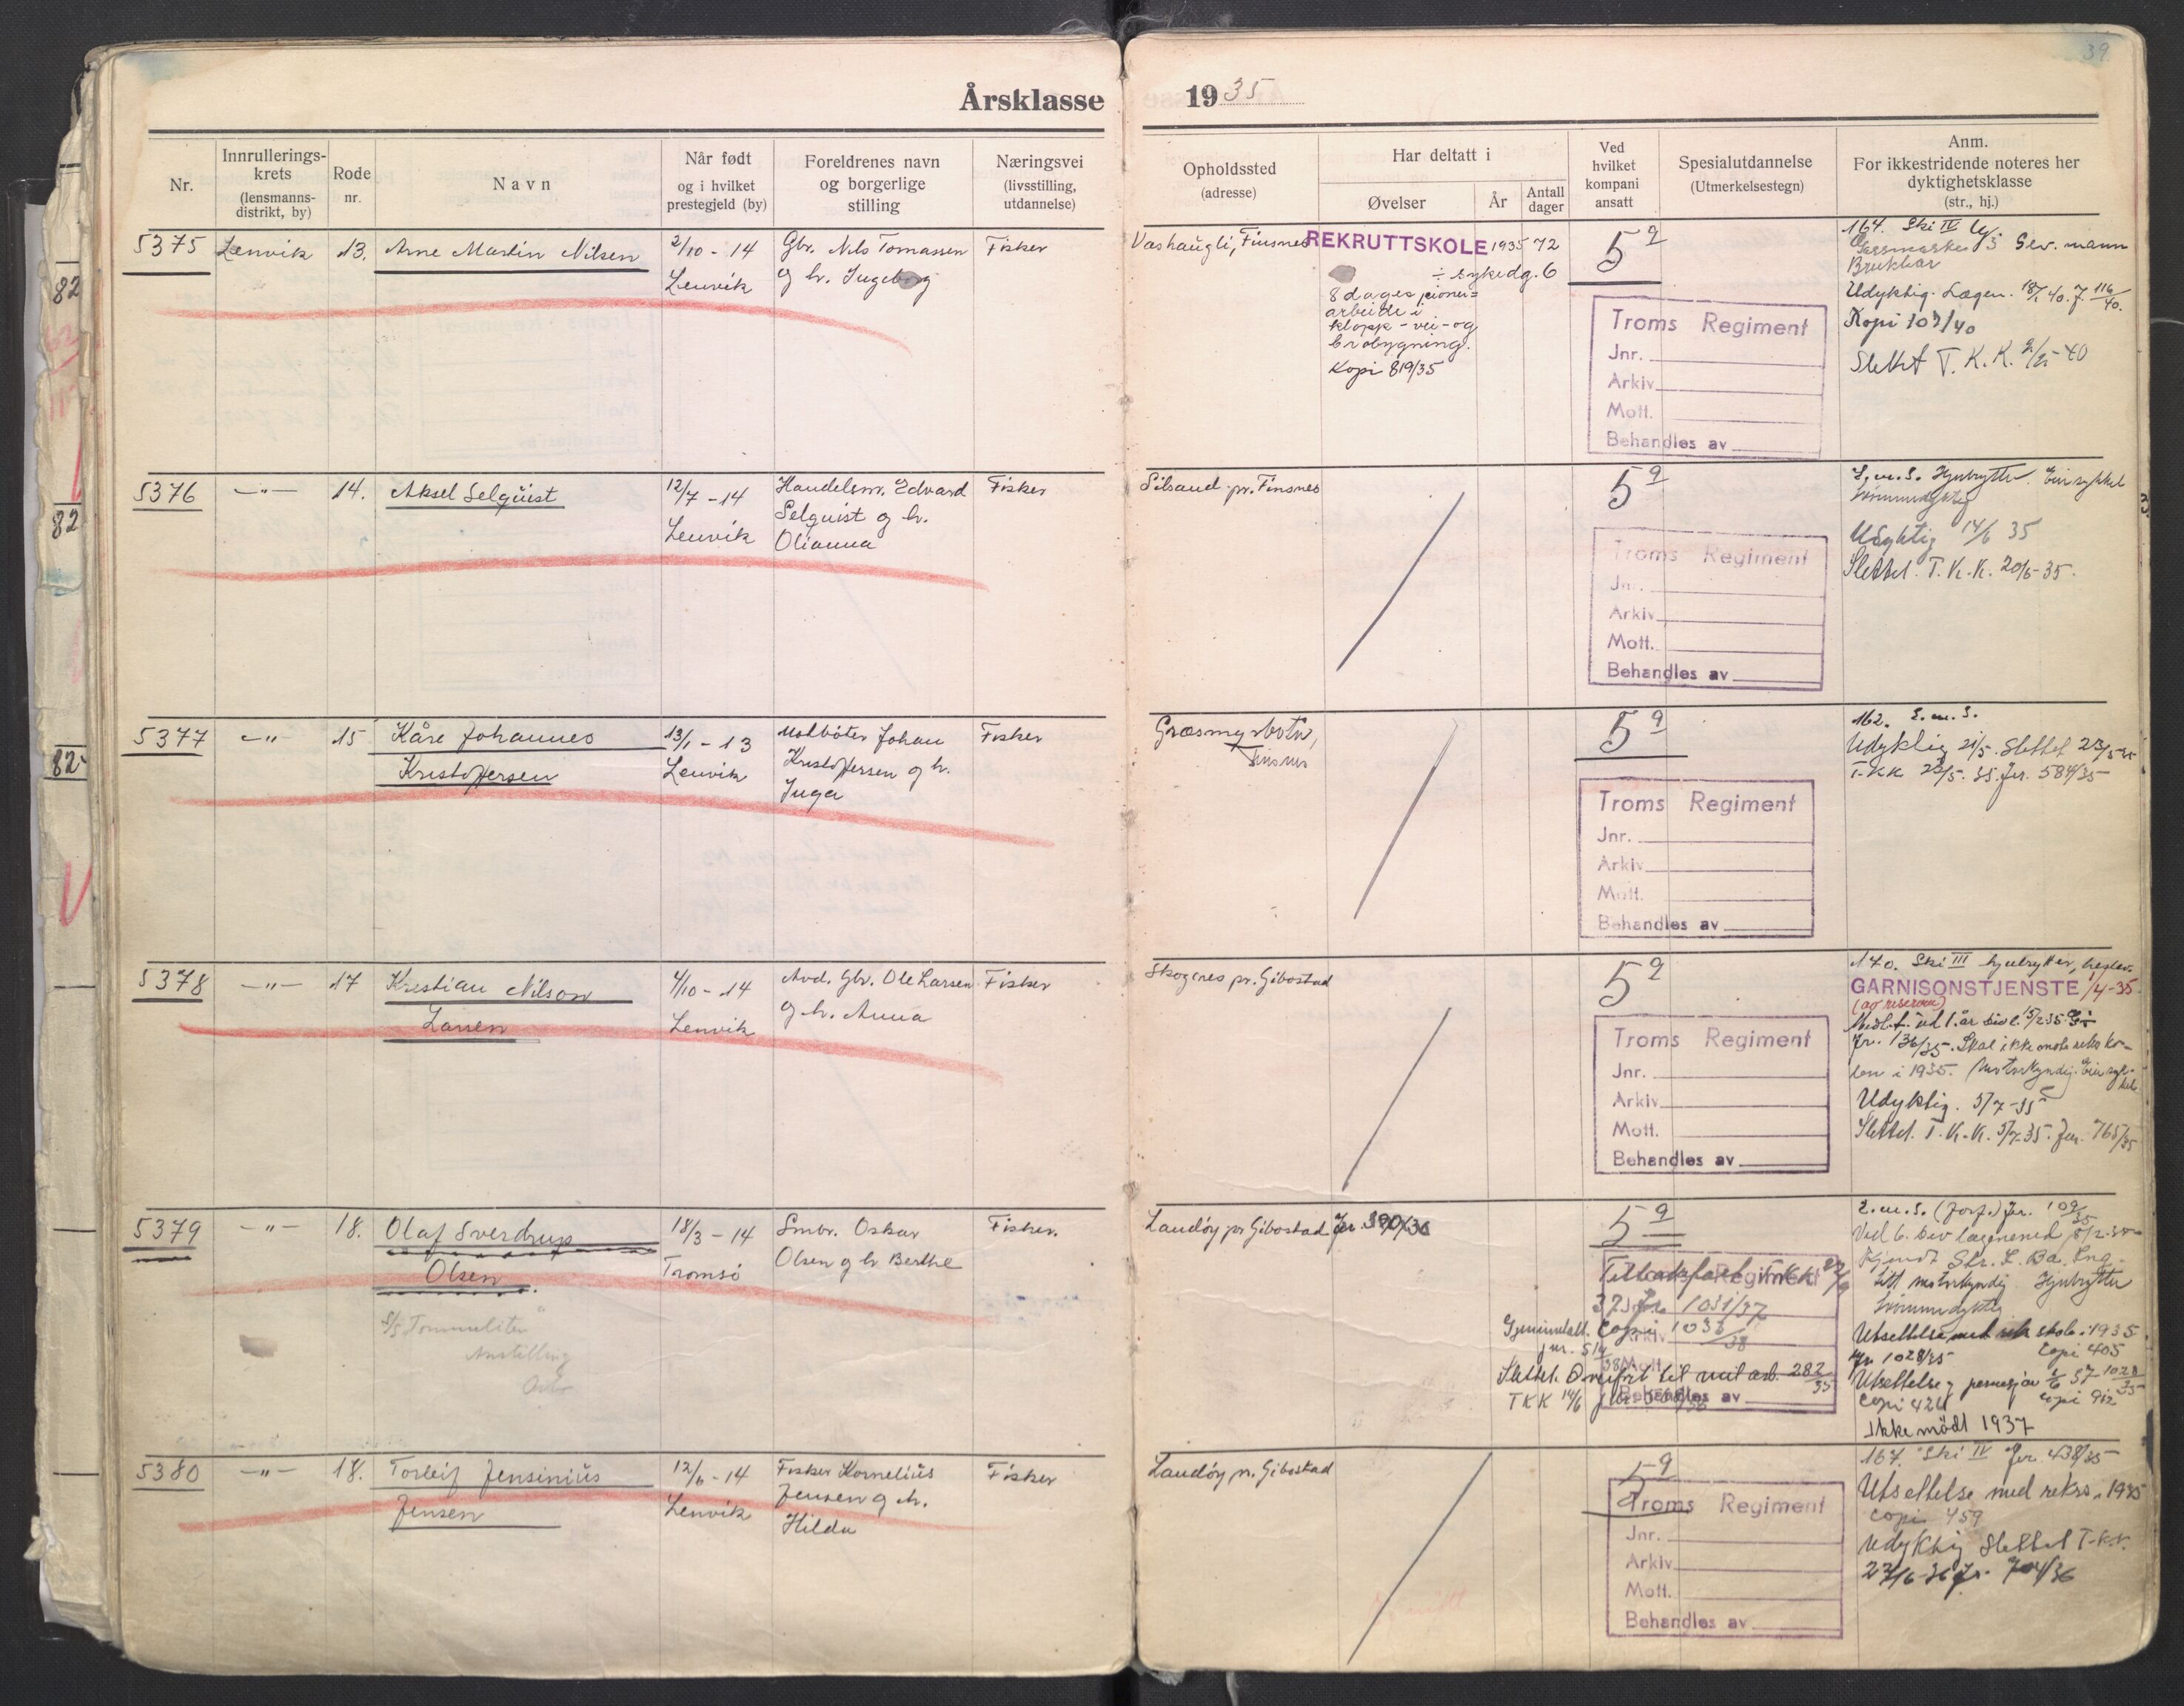 39
Årsklasse 1935
Nr.
Innrullerings-
krets
(lensmanns-
distrikt, by)
Rode
nr.
Navn
Når født
og i hvilket
prestegjeld (by)
Foreldrenes navn
og borgerlige
stilling
Næringsvei
(livsstilling,
utdannelse)
Opholdssted
(adresse)
Har deltatt i
Øvelser
År
Antall
dager
Ved
hvilket
kompani
ansatt
Spesialutdannelse
(Utmerkelsestegn)
Anm.
For ikkestridende noteres her
dyktighetsklasse
(str., hj.)
5375 Lenvik 13. Arne Martin Nilsen
2/10 - 14
Lenvik
Gbr. Nils Tomassen
og h. Ingeborg
Fisker
Vashaugli, Finsnes
REKRUTTSKOLE 1935 72
÷ sykedg. 6
8 dages pioner=
arbeide i
klopp - vei - og
brobygning.
Kopi 819/35
5 9
Troms Regiment
Jnr.
Arkiv
Mott.
Behandles av
164. Ski IV
Gassmaske 3 Gev. mann
Brukbar
Udyktig. Lægen. 18/1 40. J. 116/40.
Kopi 103/40
Slettet T. K. K. 2/2-40
5376 -"- 14. Aksel Selqüist
12/7 - 14
Lenvik
Handelsm. Edvard
Selquist og h.
Olianna
Fisker
Silsand pr. Finsnes
5 9
Troms Regiment
Jnr.
Arkiv
Mott.
Behandles av
Hjulrytter. Eier sykkel
Svømmedyktig
Udyktig 14/6 35
Slettet. T. K. K. 20/6-35.
5377 -"- 15 Kåre Johannes
Kristoffersen
13/1 - 13
Lenvik
Johan
Kristoffersen og h.
Inga
Fisker
Græsmyrbotn,
Finsnes
5 9
Troms Regiment
Jnr.
Arkiv
Mott.
Behandles av
162. E. m. S.
Udyktig 21/5. Slettet 23/5 35
T-KK 23/5. 35. Jr. 584/35
5378 -"- 17 Kristian Nilson
Larsen
4/10 - 14
Lenvik
Avd. Gbr. Ole Larsen
og h. Anna
Fisker
Skogenes pr. Gibostad
5 9
Troms Regiment
Jnr.
Arkiv
Mott.
Behandles av
170. Ski III hjulrytter,
GARNISONSTJENSTE 1/4-35
(og reserven)
Jr. 136/35. Skal ikke møte
i 1935. Motorkyndig. Eier syk-
kel
Udyktig. 5/7-35
Slettet. T. K. K. 5/7-35. Jnr. 765/35
5379 -"- 18. Olaf Sverdrup
Olsen
18/3 - 14
Tromsö
Smbr. Oskar
Olsen og h. Berthe
Fisker.
S/S Tommeliten
Landöy pr Gibostad Jr. 590/36
5 9
Troms Regiment
Tilbakeført TKK
37 Jr. 1031/37
Copi 1033/38
jnr. 514/38
Slettet. Overført til mil arb. 282/35
TKK 14/6
Behandles av
E. m. S. (forf.) Jr. 109/35
Ved 6. Div
Motorkyndig Hjulrytter
Svømmedyktig
Utsettelse med rek skole i 1935
Jr. 1028/35 Copi 405
Utsettelse
Copi 421
Ikke mödt 1937
5380 -"- 18. Torleif Jensinius
Jensen
12/6 - 14
Lenvik
Fisker Kornelius
Jensen og h.
Hilda
Fisker
Landöy pr. Gibostad
5 9
Troms Regiment
Jnr.
Arkiv
Mott.
Behandles av
167. Ski IV Jr. 438/35
Utsettelse med rekrs. 1935
Copi 459
Udyktig Slettet T-K-K.
23/6-36 Jr. 704/36